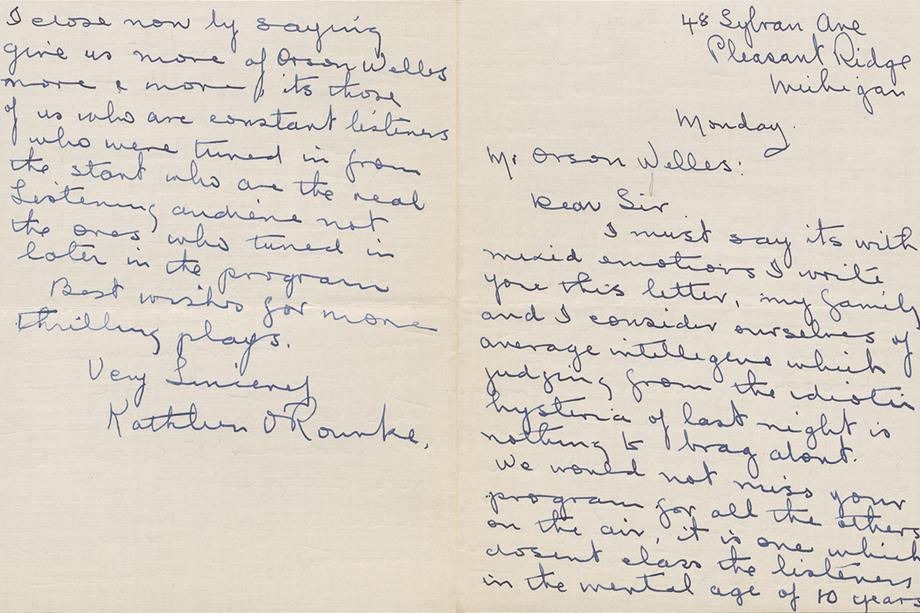 48 Sylvan Ave
Pleasant Ridge
Michigan
Monday.
Mr Orson Welles:
Dear Sir
I must say its with
mixid emotions I write
you this letter, my family
and I consider ourselves of
average intelligene which
judging from the idiotic
hysteria of last night is
nothing to brag about.
We would not miss your
program for all the others
on the air, it is one which
dosent class the listeners
in the mental age of 10 years
I close now by saying
give us more of Orson Welles
more & more, its those
of us who are constant listeners
who were tuned in from
the start who are the real
Listening audiene not
the ones who tuned in
later in the program
Best wishes for more
thrilling plays.
Very Sincerely
Kathleen O'Rourke,